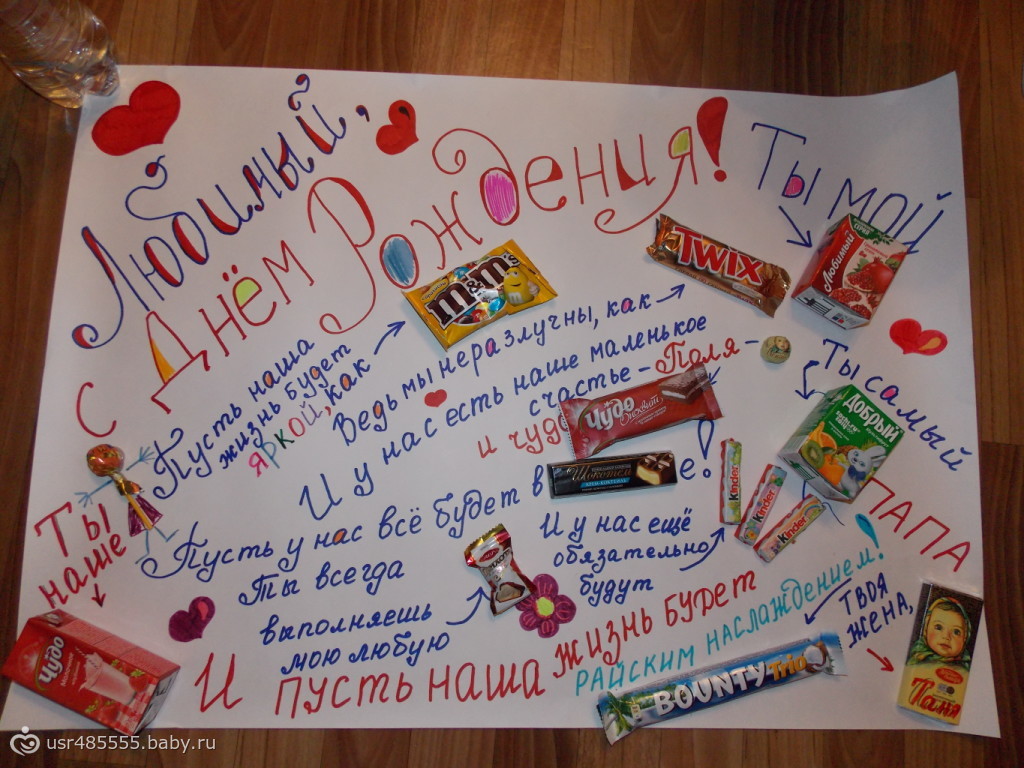 Любимый,
С Днём Рождения!
Ты мой
Любимый
TWIX
m&m's
Пусть наша
жизнь будет
яркой, как
Ведь мы неразлучны, как
И у нас есть наше маленькое
счастье – Поля –
и чудо
Чудо
Ты самый
Добрый
ПАПА
Пусть у нас всё будет в
Шокотем
е!
Ты
наше
Чудо
Ты всегда
выполняешь
мою любую
И у нас ещё
обязательно
будут
Kinder
Kinder
Kinder
И пусть наша жизнь будет
райским наслаждением!
BOUNTY Trio
Твоя
жена,
Таня
usr485555.baby.ru